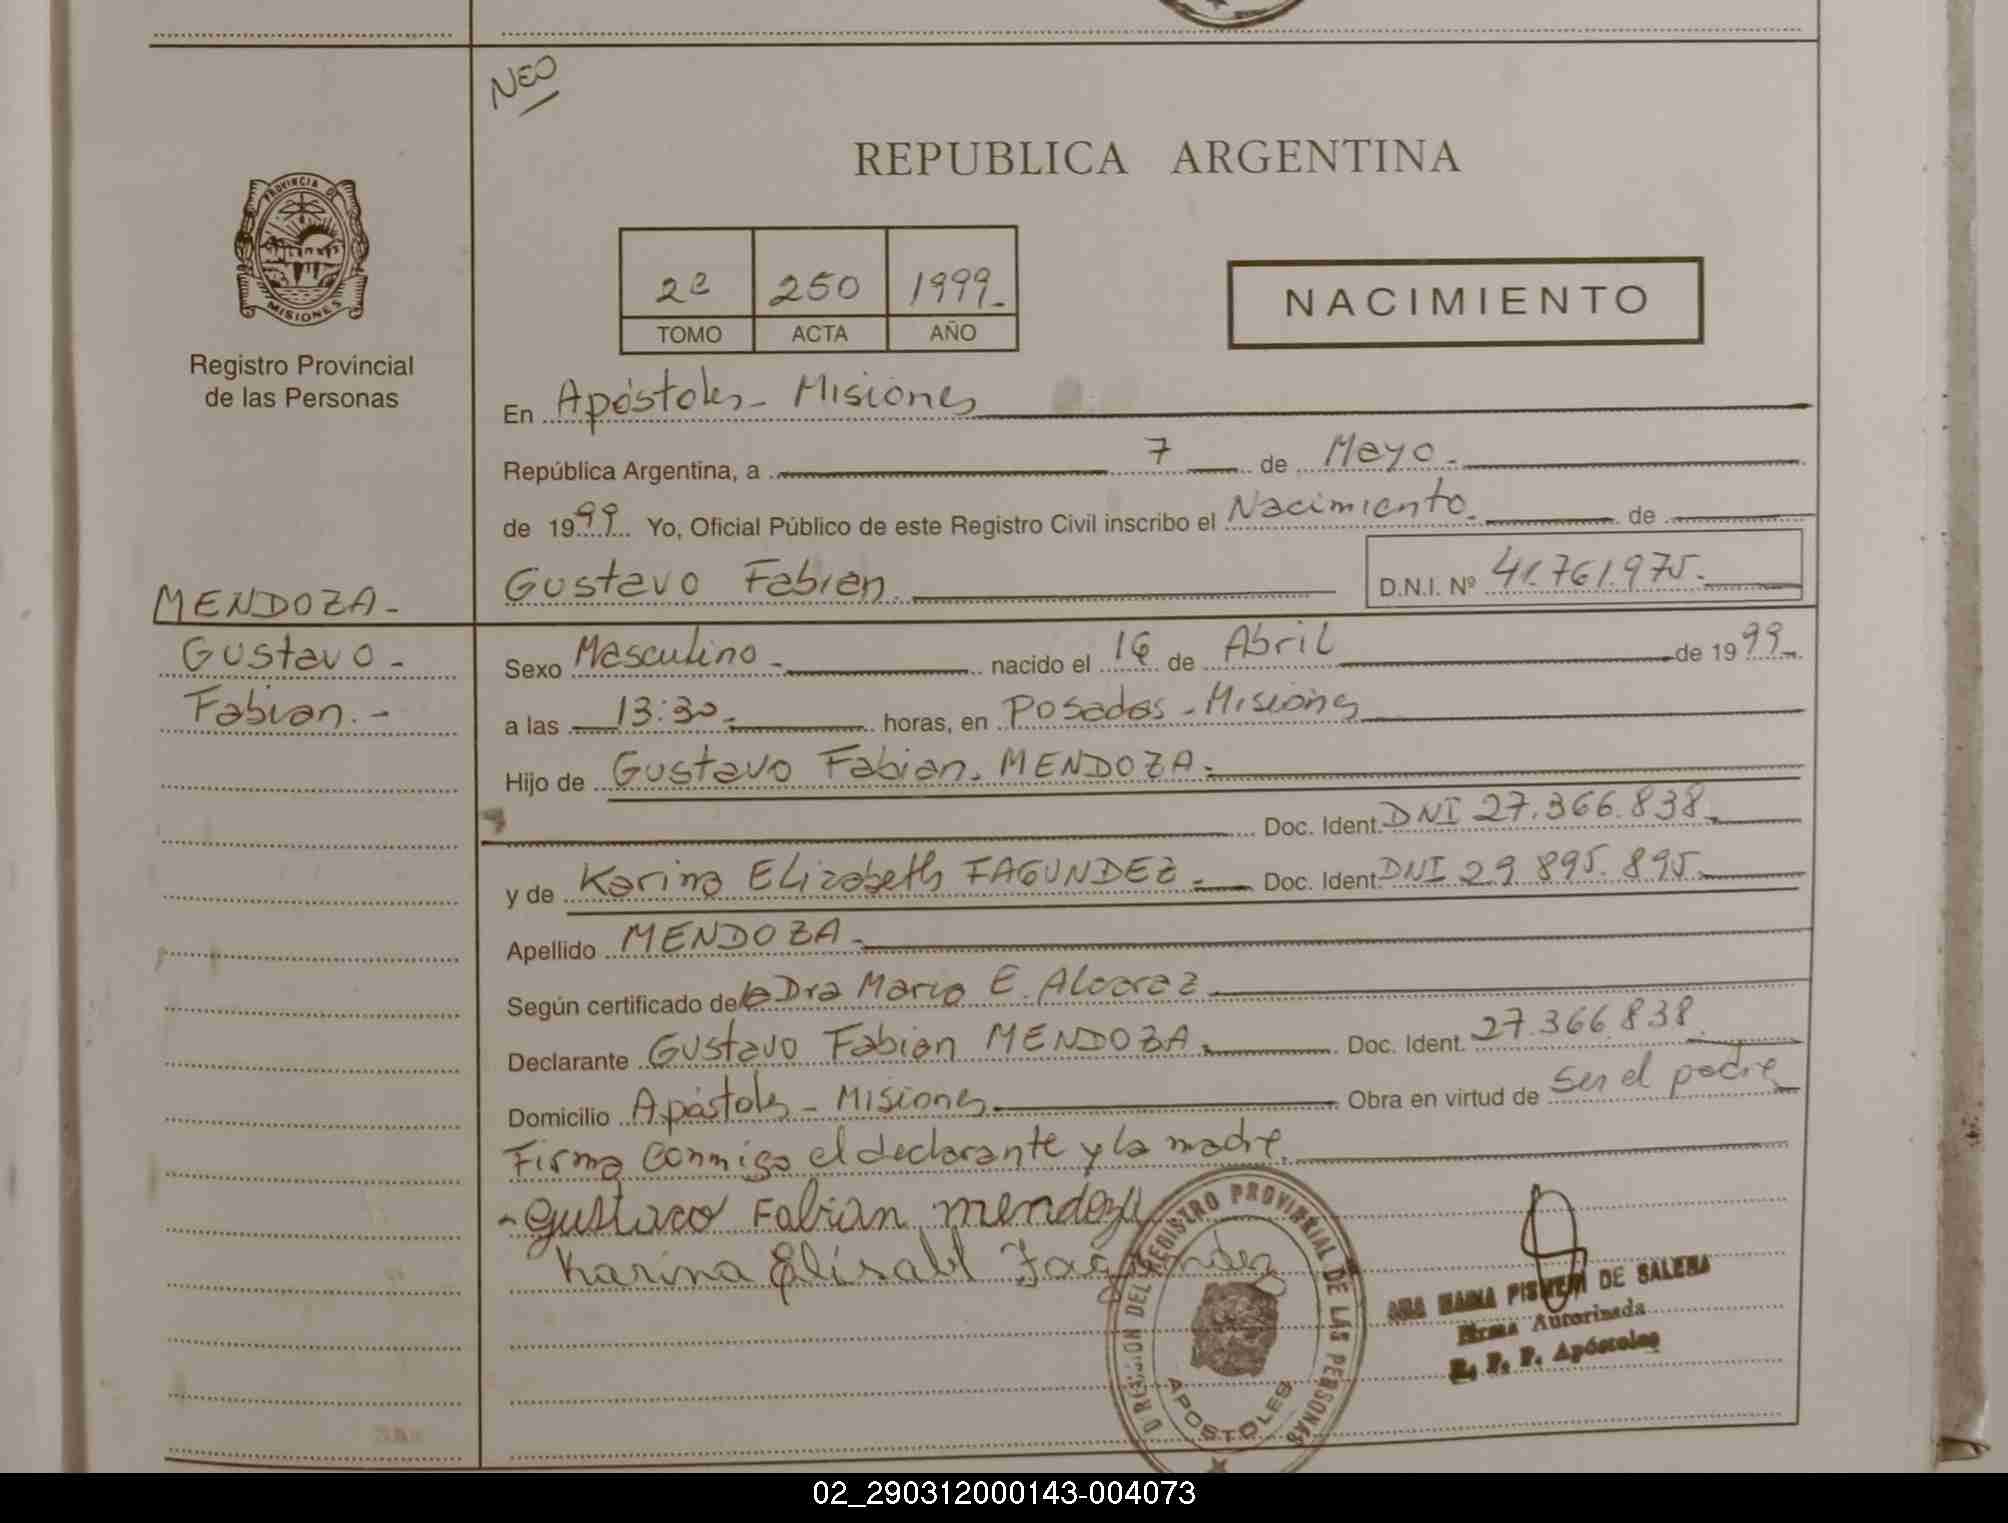 NEO
REPUBLICA ARGENTINA
PROVINCIA DE
MISIONES
Registro Provincial
de las Personas
2ª 250 1999.
TOMO ACTA AÑO
NACIMIENTO
En Apóstoles - Misiones
República Argentina, a 7 de Mayo.
de 1999 Yo, Oficial Público de este Registro Civil inscribo el Nacimiento. de
Gustavo Fabian. D.N.I. Nº 41.761.975.
MENDOZA-
Gustavo-
Fabian.-
Sexo Masculino - nacido el 16 de Abril de 1999.
a las 13:30. horas, en Posadas - Misiones
Hijo de Gustavo Fabian. MENDOZA.
Doc. Ident. DNI 27.366.838.
y de Karina Elizabeth FAGUNDEZ. Doc. Ident. DNI 29.895.895.
Apellido MENDOZA.
Según certificado de la Dra Maria E. Alcaraz
Declarante Gustavo Fabian MENDOZA. Doc. Ident. 27.366.838.
Domicilio Apóstoles - Misiones. Obra en virtud de ser el padre
Firma conmigo el declarante y la madre.
-Gustavo Fabian mendoza
Karina Elisabet Fagundez
DIRECCION DEL REGISTRO PROVINCIAL DE LAS PERSONAS
APOSTOLES
ANA MARIA DE SALEHA
Firma Autorizada
R. P. P. Apóstoles
02_290312000143-004073